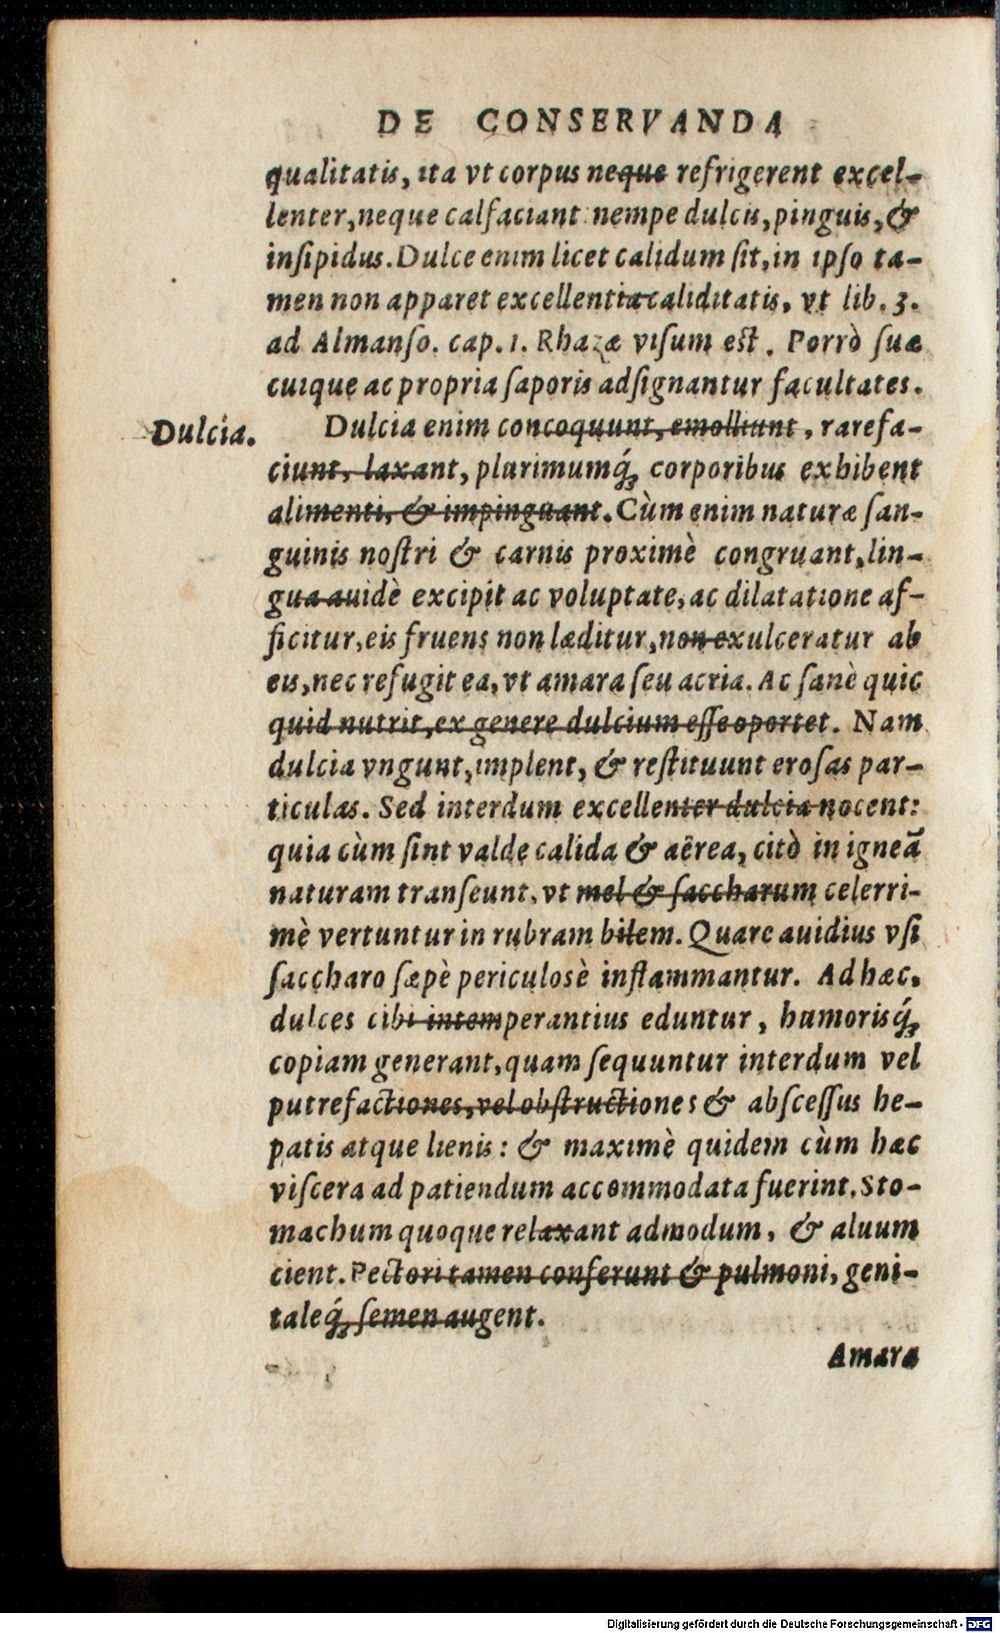 DE CONSERVANDA
qualitatis, ita vt corpus neque refrigerent excel-
lenter, neque calfaciant: nempe dulcis, pinguis, &
insipidus. Dulce enim licet calidum sit, in ipso ta-
men non apparet excellentia caliditatis, vt lib. 3.
ad Almanso. cap. 1. Rhazæ visum est. Porrò suæ
cuique ac propria saporis adsignantur facultates.
Dulcia.
Dulcia enim concoquunt, emolliunt, rarefa-
ciunt, laxant, plurimumq́; corporibus exhibent
alimenti, & impinguant. Cùm enim naturæ san-
guinis nostri & carnis proximè congruant, lin-
gua auidè excipit ac voluptate, ac dilatatione af-
ficitur, eis fruens non læditur, non exulceratur ab
eis, nec refugit ea, vt amara seu acria. Ac sanè quic
quid nutrit, ex genere dulcium esse oportet. Nam
dulcia vngunt, implent, & restituunt erosas par-
ticulas. Sed interdum excellenter dulcia nocent:
quia cùm sint valde calida & aërea, citò in igneā
naturam transeunt, vt mel & saccharum celerri-
mè vertuntur in rubram bilem. Quare auidius vsi
saccharo sæpè periculosè inflammantur. Ad hæc,
dulces cibi intemperantius eduntur, humorisq́;
copiam generant, quam sequuntur interdum vel
putrefactiones, vel obstructiones & abscessus he-
patis atque lienis: & maximè quidem cùm hæc
viscera ad patiendum accommodata fuerint. Sto-
machum quoque relaxant admodum, & aluum
cient. Pectori tamen conferunt & pulmoni, geni-
taleq́; semen augent.
Amara
Digitalisierung gefördert durch die Deutsche Forschungsgemeinschaft - DFG